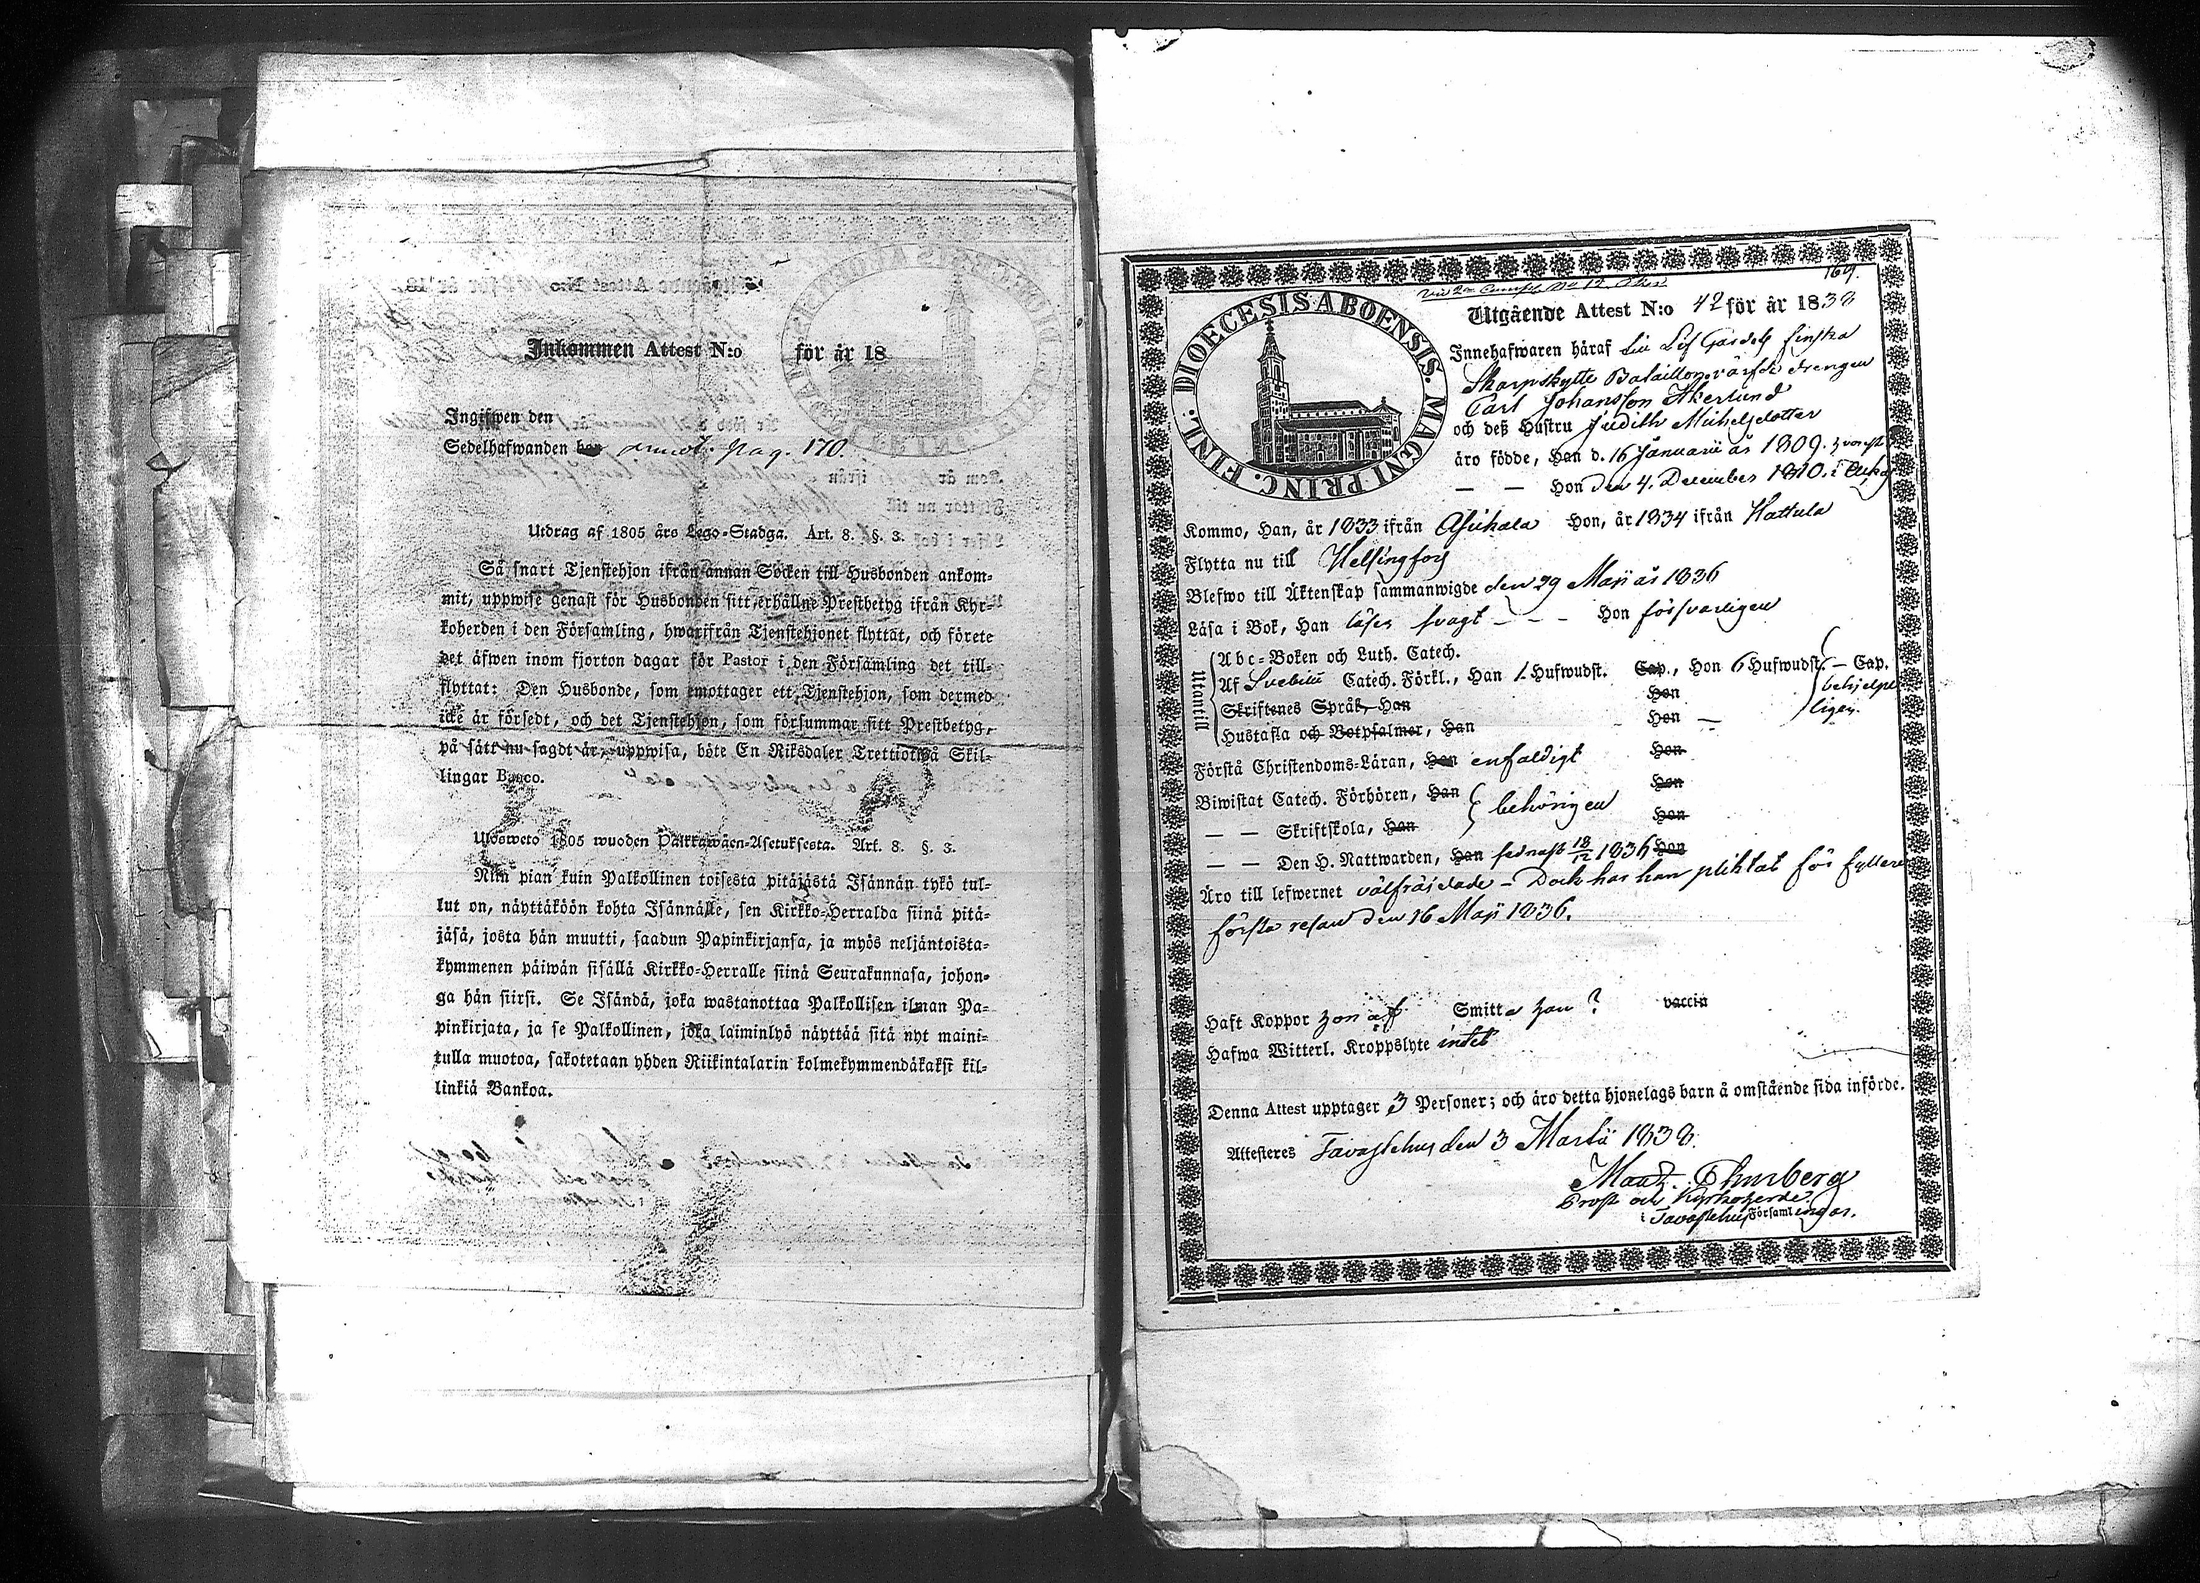 Inkommen Attest N:o för år 18
Ingifwen den
Sedelhafwanden har pag. 170.
Utdrag af 1805 års Lego-Stadga. Art. 8. §. 3.
Så snart Tjenstehjon ifrån annan Socken till Husbonden ankom-
mit, uppwise genast för Husbonden sitt erhållne Prestbetyg ifrån Kyr-
koherden i den Församling, hwarifrån Tjenstehjonet flyttat, och förete
det äfwen inom fjorton dagar för Pastor i den Församling det till-
flyttat: Den Husbonde, som emottager ett Tjenstehjon, som dermed
icke är försedt, och det Tjenstehjon, som försummar sitt Prestbetyg,
på sätt nu sagdt är, uppwisa, böte En Riksdaler Trettiotwå Skil-
lingar Banco.
Ulosweto 1805 wuoden Palkkawäen-Asetuksesta. Art. 8. §. 3.
Niin pian kuin Palkollinen toisesta pitäjästä Isännän tykö tul-
lut on, näyttäköön kohta Isännälle, sen Kirkko-Herralda siinä pitä-
jäsä, josta hän muutti, saadun Papinkirjansa, ja myös neljäntoista-
kymmenen päiwän sisällä Kirkko-Herralle siinä Seurakunnasa, johon-
ga hän siirsi. Se Isändä, joka wastanottaa Palkollisen ilman Pa-
pinkirjata, ja se Palkollinen, joka laiminlyö näyttää sitä nyt maini-
tulla muotoa, sakotetaan yhden Riikintalarin kolmekymmendäkaksi kil-
linkiä Bankoa.
169.
DIOECESIS ABOENSIS. MAGNI PRINC. FINL.
Utgående Attest N:o 42 för år 1838
Innehafwaren häraf Lif Gardets Finska
Skarpskytte Bataillon värfde drengen
Carl Johansson Åkerlund
och deß Hustru Judith Michelsdotter
äro födde, Han d. 16 Januarii år 1809.
— — Hon den 4. December 1810. i
Kommo, Han, år 1833 ifrån Asikala Hon, år 1834 ifrån Hattula
Flytta nu till Helsingfors
Blefwo till Äktenskap sammanwigde den 29 Maji år 1836
Läsa i Bok, Han läser svagt - - - Hon försvarligen
Utantill
Abc-Boken och Luth. Catech.
Af Svebilii Catech. Förkl., Han 1. Hufwudst. Cap., Hon 6 Hufwudst. — Cap.
Skriftenes Språk, Han Hon behjelpligen.
Hustafla och Botpsalmer, Han Hon —
Förstå Christendoms-Läran, Han enfaldigt Hon
Biwistat Catech. Förhören, Han behörigen Hon
— — Skriftskola, Han Hon
— — Den H. Nattwarden, Han sednast 18/12 1836 Hon
Äro till lefwernet välfräjdade - Dock har han pliktat för fylleri
första resan den 16 Maji 1836.
Haft Koppor Smitt vaccin
Hafwa Witterl. Kroppslyte intet
Denna Attest upptager 3 Personer; och äro detta hjonelags barn å omstående sida införde.
Attesteres Tavastehus den 3 Martii 1838.
Ehurberg
Prost och Kyrkoherde
i Tavastehus Församlingar.